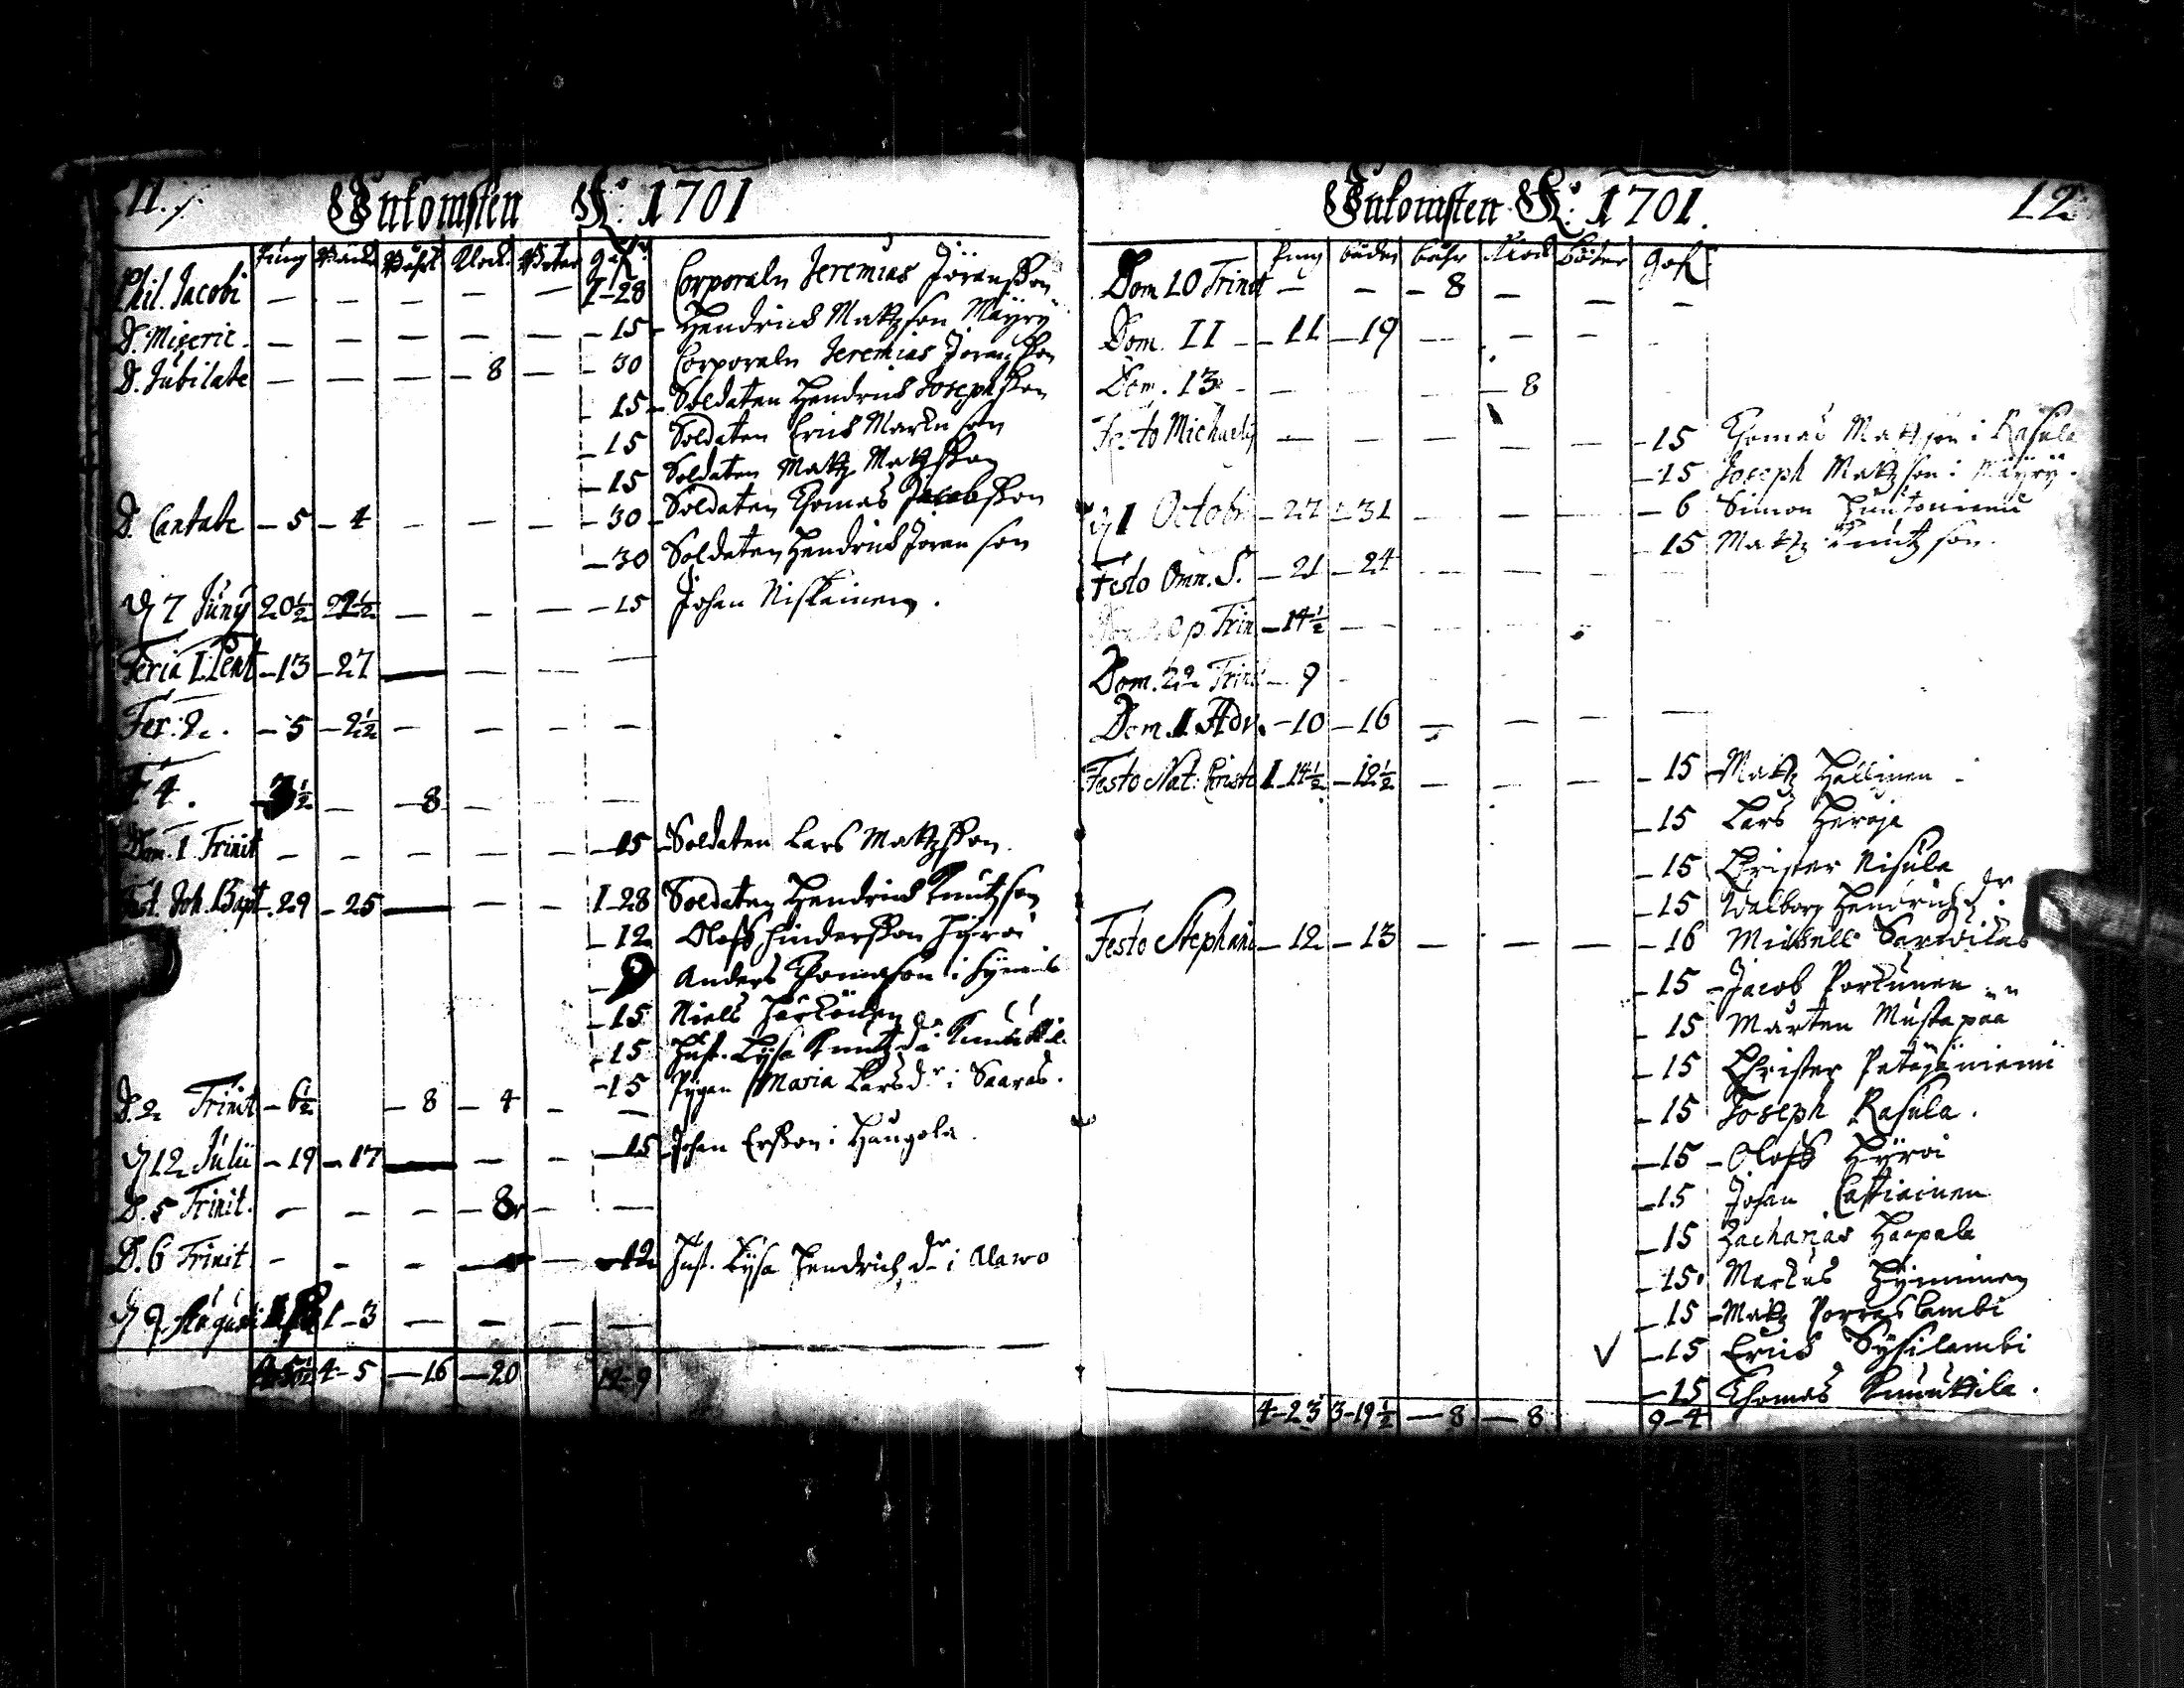 11. Inkomsten A:o 1701
Pung Bäck Båhr Klock Böter Gåf
Phil. Jacobi — — — — — 1-28 Corporaln Jeremias Jöransson
D. Miseric. — — — — — -15- Hendrich Matzson Mäyry
D. Jubilate — — — -8 — -30 Corporaln Jeremias Joransson
-15- Soldaten Hendrich Josephsson
-15 Soldaten Erich Marcuson
-15 Soldaten Matz Matzsson
D. Cantate -5 -4 — — — -30- Soldaten Thomas Jacobsson
-30 Soldaten Hendrich Joranson
7 Juny 20½ 22½ — — — -15 Johan Niskainen.
Feria I. Pent -13 -27 — — — —
Fer: 2. -5 -2½ — — — —
F 4. -3½ — -8 — — —
Dom. 1 Trinit — — — — — -15 Soldaten Lars Matzsson
Fest. Joh. Bapt. 29 -25 — — — 1-28 Soldaten Hendrich Knutzson
-12 Oloff Hindersson Hyröi
-9 Anders Thomason i
-15 Niels Härkönen
-15 Hust. Lysa Knutz dr i Knuuttil
-15 Pygan Maria Larsdr i Saaras.
D. 2 Trinit -6½ -8 -4 — —
12 Julii -19 -17 — — — -15 Johan Ersson i Haugola
D. 5 Trinit. — — — -8 — —
D. 6 Trinit — — — — — -12 Hust. Lysa Hendrichdr i Alawo
9 Augusti 1-3 — — — —
4-5 -16 -20 12-9
Inkomsten A:o 1701. 12
Pung bäcken båhr Klock böter Gåf
Dom 10 Trinit — — -8 — — —
Dom. 11 -11 -19 — — —
Dom. 13 — — -8
Festo Michaelis — — — — — -15 Thomas Matzson i Rasula
-15 Joseph Matzson i Mäyry.
1 Octob -27 -31 — — — -6 Simon
-15 Matz Knutzson.
Festo Omn. S. -21 -24 — — —
p. Trin -14½ — — —
Dom. 22 Trinit -9 -
Dom. 1 Adv. -10 -16 — — — —
Festo Nat: Christi 1-14½ -12½ — — — -15 Matz Hallinen
-15 Lars Heroja
-15 Christer Nisula
-15 Walborg Hendrichdr
Festo Stephani -12 -13 — — — -16 Michell Sarwikas
-15 -Jacob Porkunen
-15 Mårten Mustapää
-15 Christer Petäjäniemi
-15 Joseph Rasula.
-15 -Oloff Hyröi
-15 Johan Castiainen
-15 Zacharias Haapala
-15 Markus Hyminen
-15 -Matz Porraslambi
-15 Erich Sysilambi
-15 Thomas Knuuttila.
4-23 3-19½ -8 -8 9-4